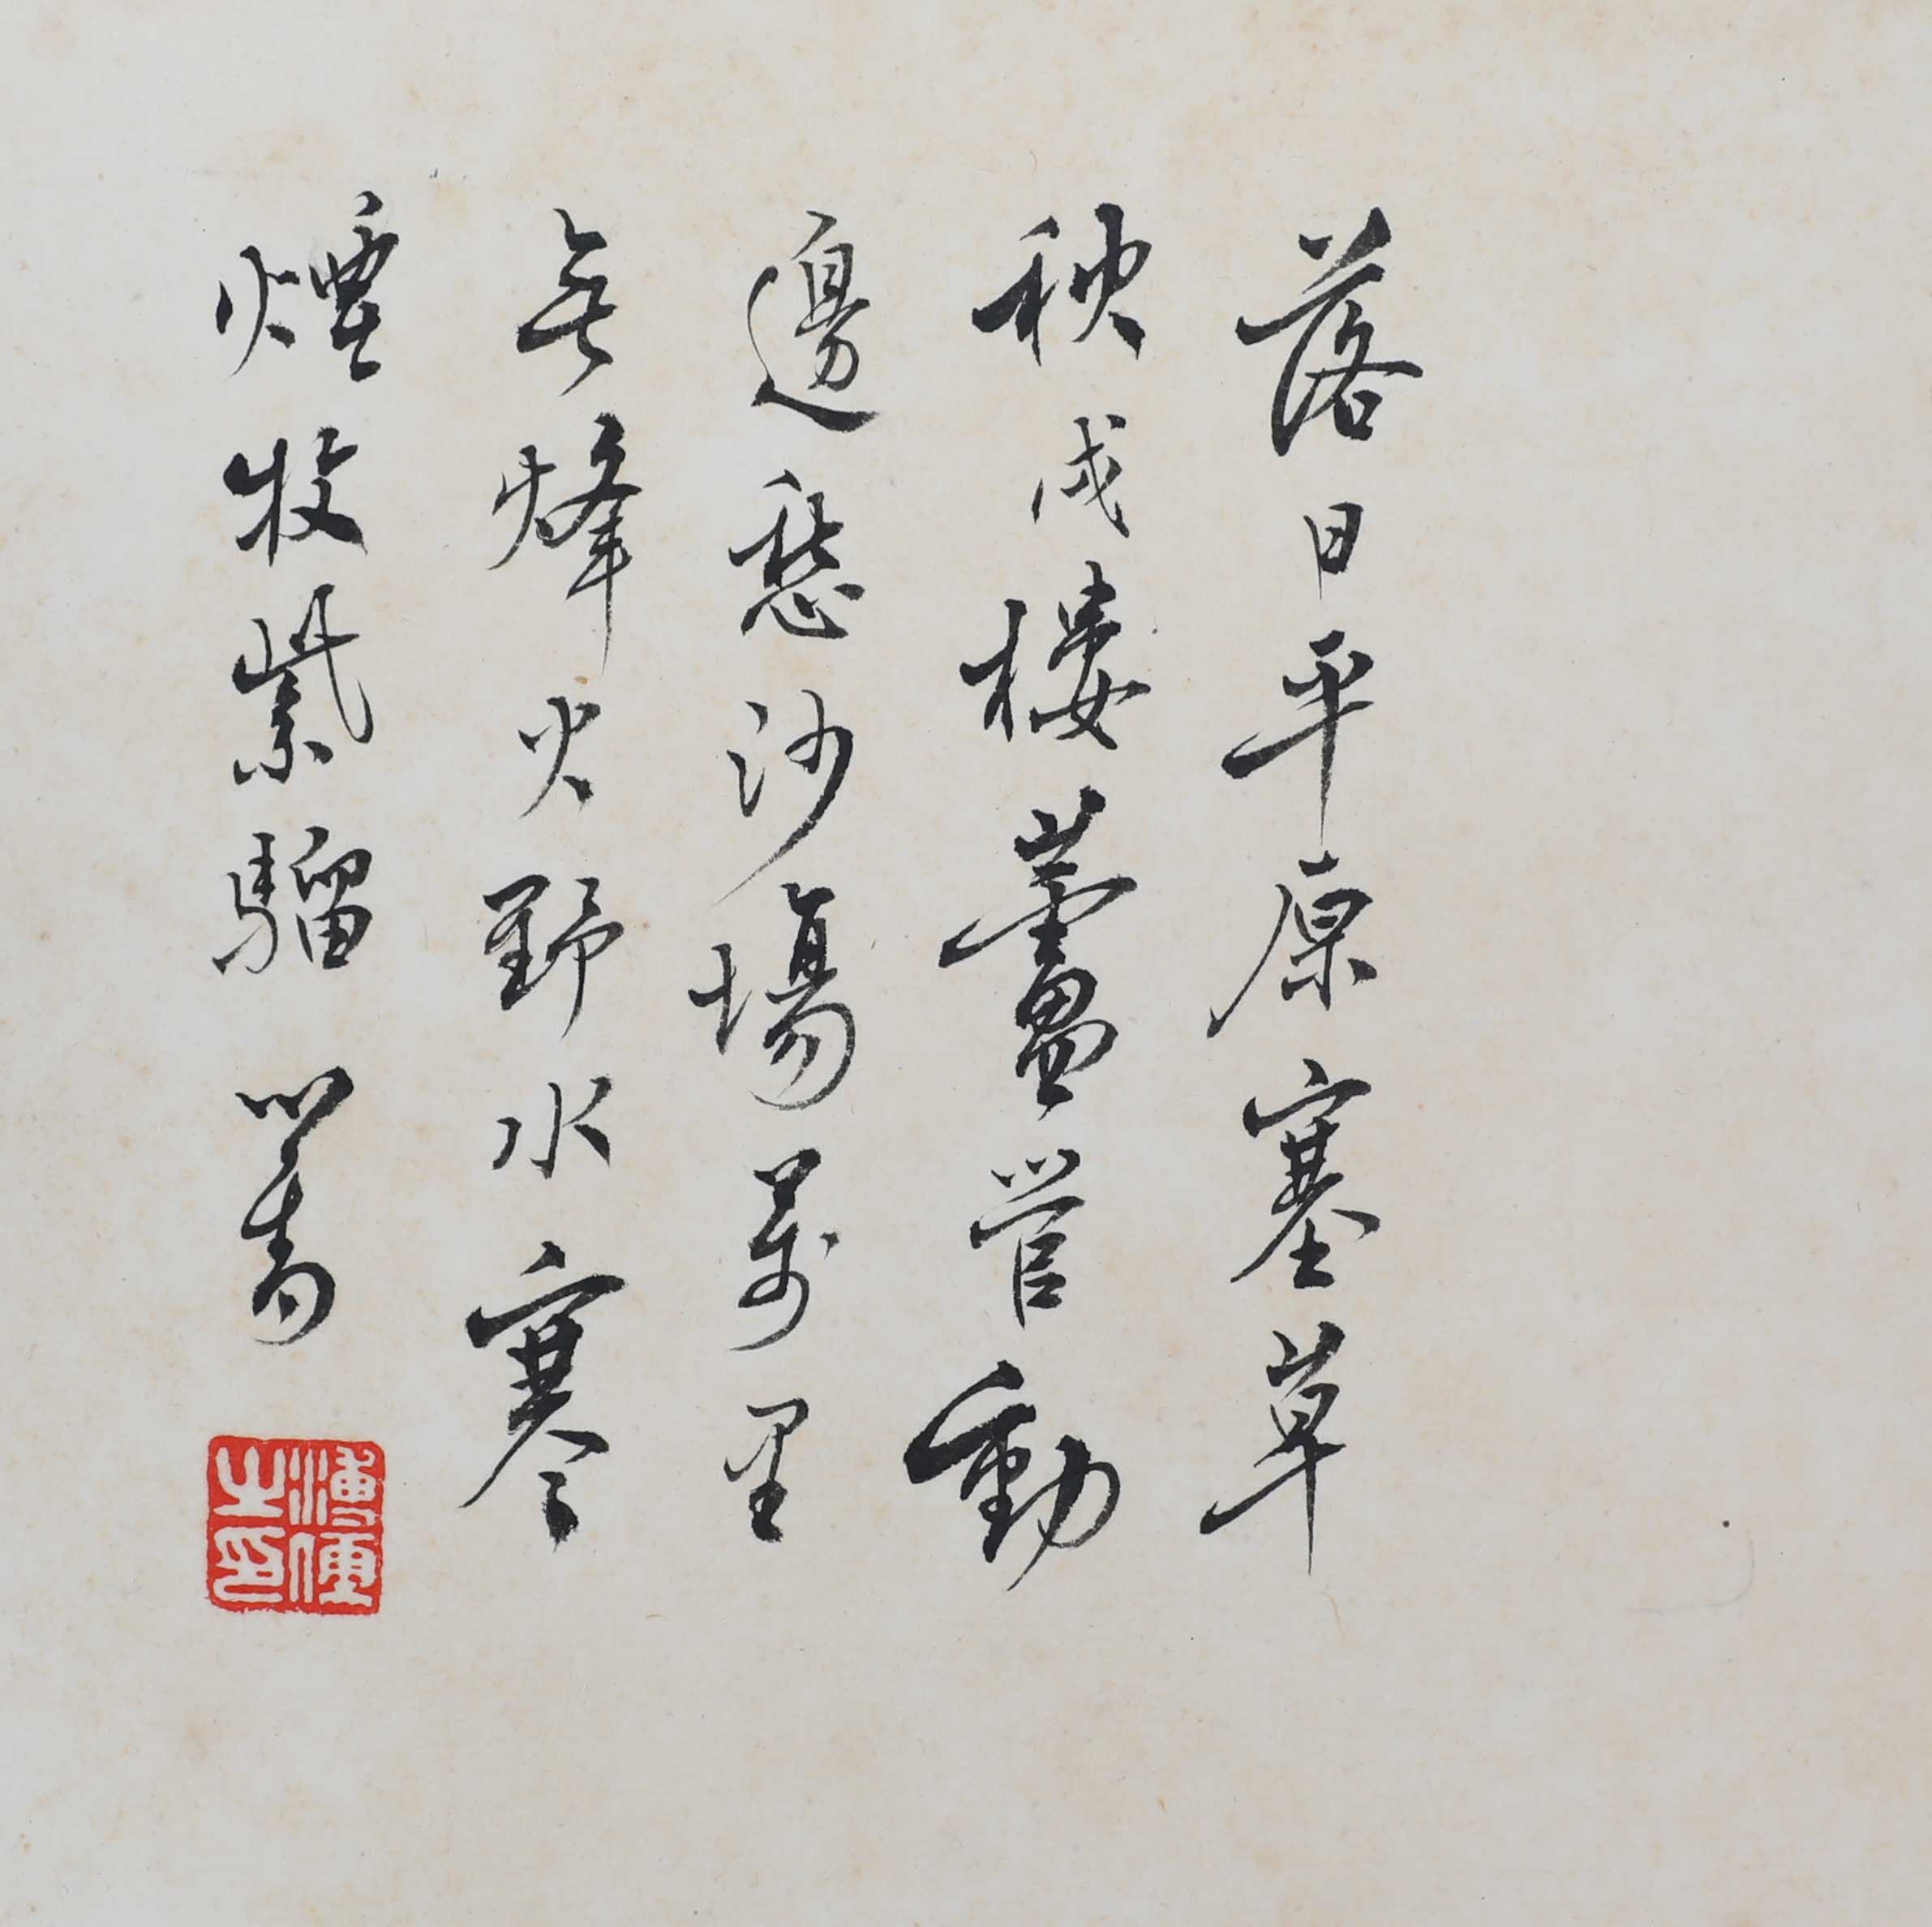 落日平原塞草
秋戍樓蘆管動
邊愁沙場萬里
無烽火野水寒
煙牧紫騮 心畬
溥儒之印